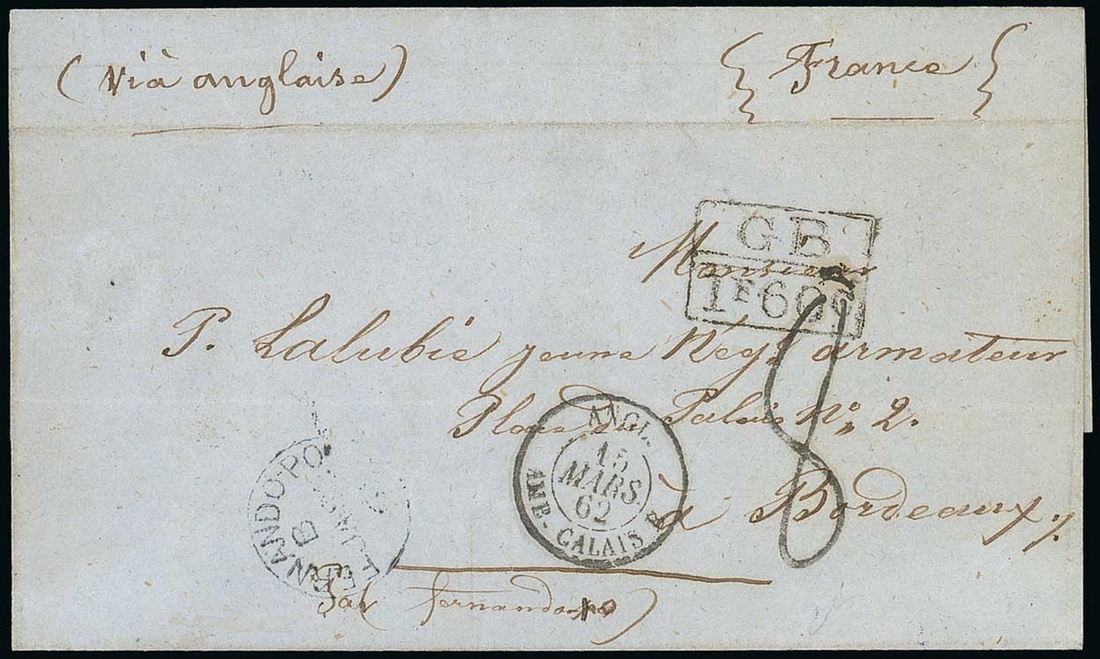 (Vià anglaise) { France }
GB
1F60c
Monsieur
P. Lalubie jeune Negt armateur
Place du Palais No 2.
à Bordeaux
ANGL.
15
MARS
62
AMB-CALAIS B
FERNANDO PO
B
Par fernando po)
8